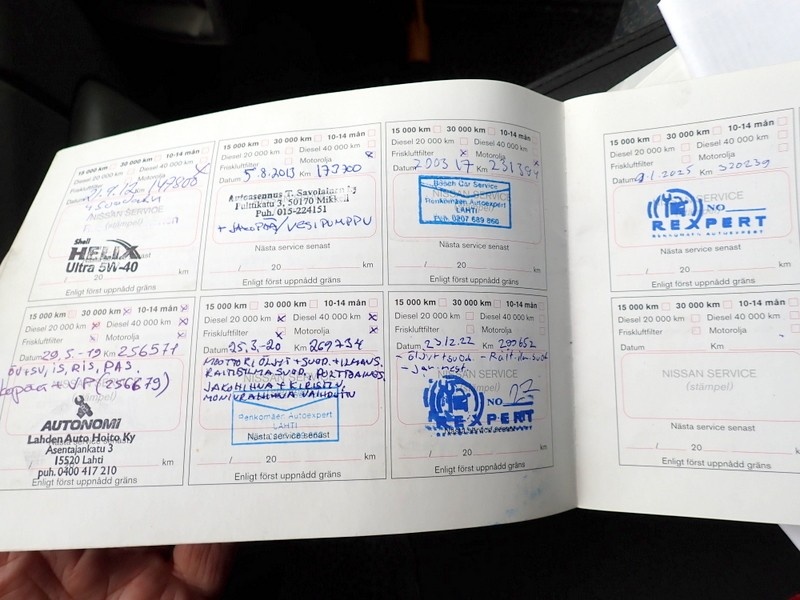 15 000 km 30 000 km 10-14 mån
Diesel 20 000 km Diesel 40 000 km
Friskluftfilter Motorolja
NISSAN SERVICE
(stämpel)
Shell
HELIX
Ultra 5W-40
/ 20 km
Enligt först uppnådd gräns
15 000 km 30 000 km 10-14 mån
Diesel 20 000 km Diesel 40 000 km
Friskluftfilter Motorolja
Datum 5.8.2013 Km 173700
Autoasennus T. Savolainen
50170 Mikkeli
Puh. 015-224151
+ JAKOPÄÄ/VESIPUMPPU
Nästa service senast
/ 20 km
Enligt först uppnådd gräns
15 000 km 30 000 km 10-14 mån
Diesel 20 000 km Diesel 40 000 km
Friskluftfilter Motorolja
Datum 2003 17 Km 231394
Bosch Car Service
Renkomäen Autoexpert
LAHTI
Puh. 0207 689 866
Nästa service senast
/ 20 km
Enligt först uppnådd gräns
15 000 km 30 000 km 10-14 mån
Diesel 20 000 km Diesel 40 000 km
Friskluftfilter Motorolja
Datum .1.2025 Km 320239
NISSAN SERVICE
NO
REXPERT
RENKOMÄEN AUTOEXPERT
Nästa service senast
/ 20 km
Enligt först uppnådd gräns
15 000 km 30 000 km 10-14 mån
Diesel 20 000 km Diesel 40 000 km
Friskluftfilter Motorolja
Datum 29.5.-19 Km 256577
IS, RIS, PAS,
(256679)
AUTONOMI
Lahden Auto Hoito Ky
Asentajankatu 3
15520 Lahti
puh. 0400 417 210
/ 20 km
Enligt först uppnådd gräns
15 000 km 30 000 km 10-14 mån
Diesel 20 000 km Diesel 40 000 km
Friskluftfilter Motorolja
Datum 25.3.-20 Km 269734
MOOTTORIÖLJYT + SUOD. + ILMANS.
RAITISILMASUOD, POLTTOAINES.
JAKOHIHNA + KIRISTIN,
MONIURAHIHNA VAIHDETTU
Renkomäen Autoexpert
LAHTI
Nästa service senast
/ 20 km
Enligt först uppnådd gräns
15 000 km 30 000 km 10-14 mån
Diesel 20 000 km Diesel 40 000 km
Friskluftfilter Motorolja
Datum 23.12.22 Km 299652
- öljyt+suod - Rait.ilm.suod
- Jarrunest
NISSAN SERVICE
NO 27
REXPERT
Nästa service senast
/ 20 km
Enligt först uppnådd gräns
15 000 km 30 000 km 10-14 mån
Diesel 20 000 km Diesel 40 000 km
Friskluftfilter Motorolja
Datum Km
NISSAN SERVICE
(stämpel)
Nästa service senast
/ 20 km
Enligt först uppnådd gräns